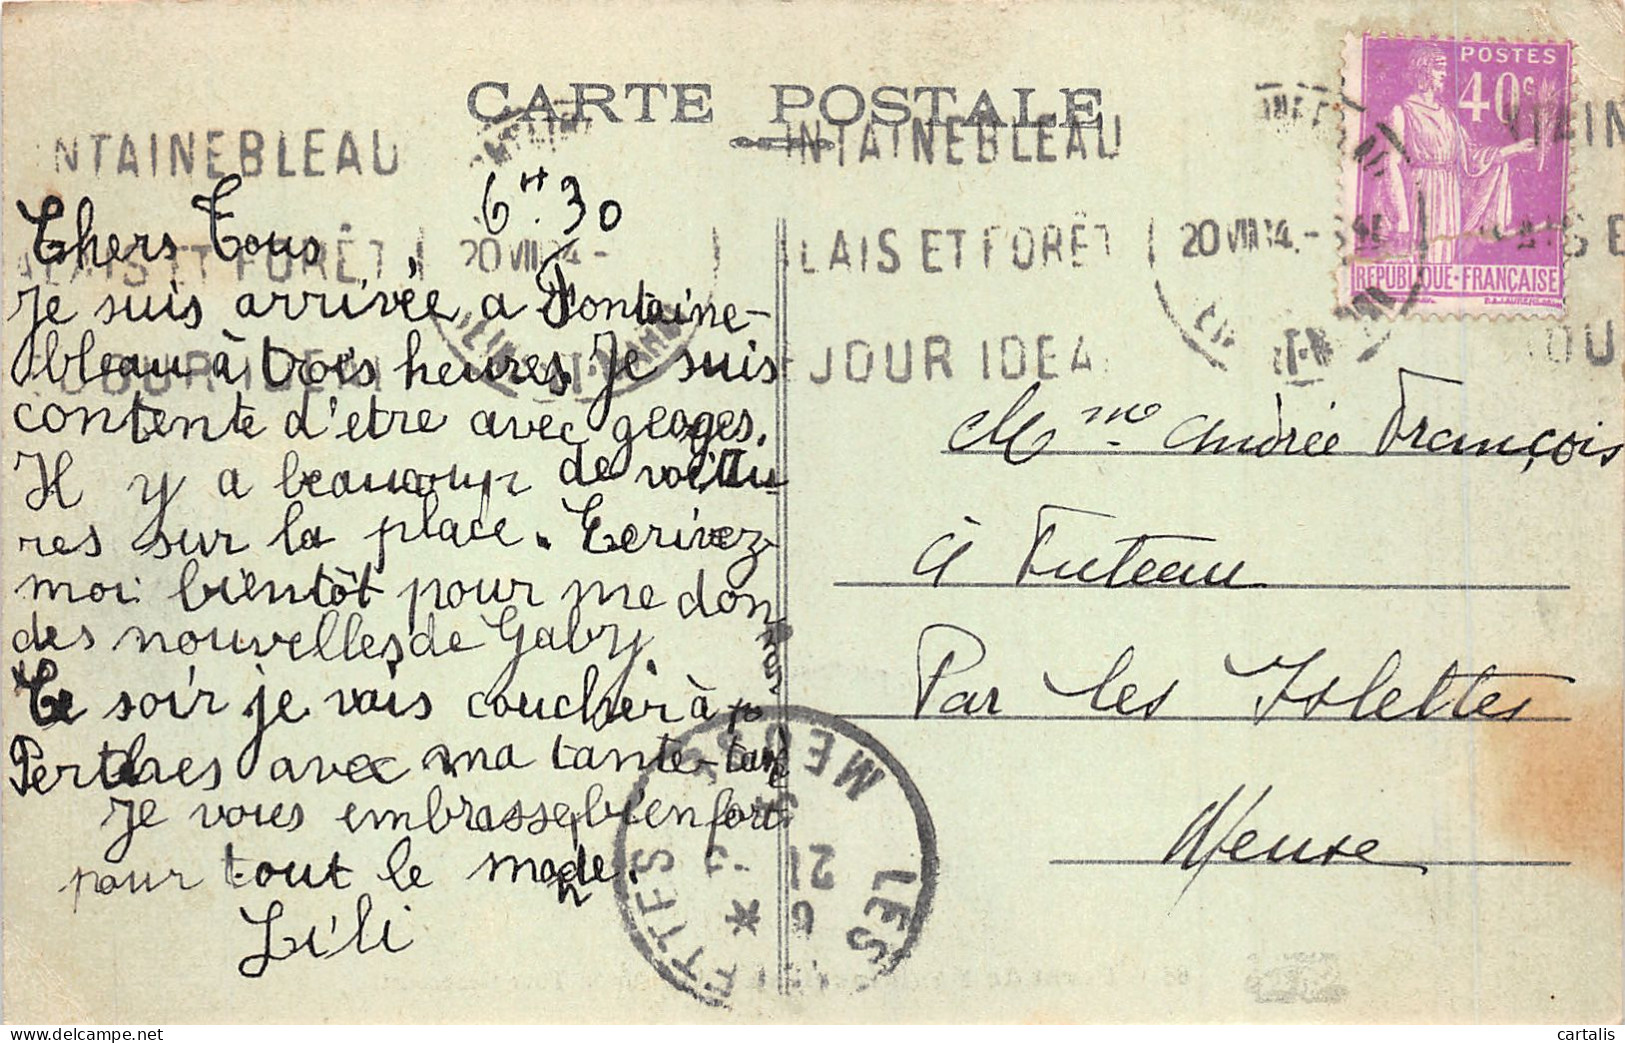 CARTE POSTALE
NTAINEBLEAU
NTAINEBLEAU
NTAIN
LAIS ET FORÊT
LAIS ET FORÊT
20 VIII 34
20 VIII 34
JOUR IDEA
JOUR IDEA
POSTES
40c
REPUBLIQUE-FRANÇAISE
6H.30
Chers Tous
Je suis arrivée a Fontaine-
bleau à trois heures. Je suis
contente d'etre avec georges.
Il y a beaucoup de voitu
res sur la place. Ecrivez
moi bientôt pour me don
ner
des nouvelles de Gaby.
Ce soir je vais coucher à
Perthes avec ma tante-
Je vous embrasse bien fort
pour tout le monde.
Lili
Mme Andrée François
à Futeau
Par les Islettes
Meuse
LES ISLETTES
MEUSE
21
cartalis